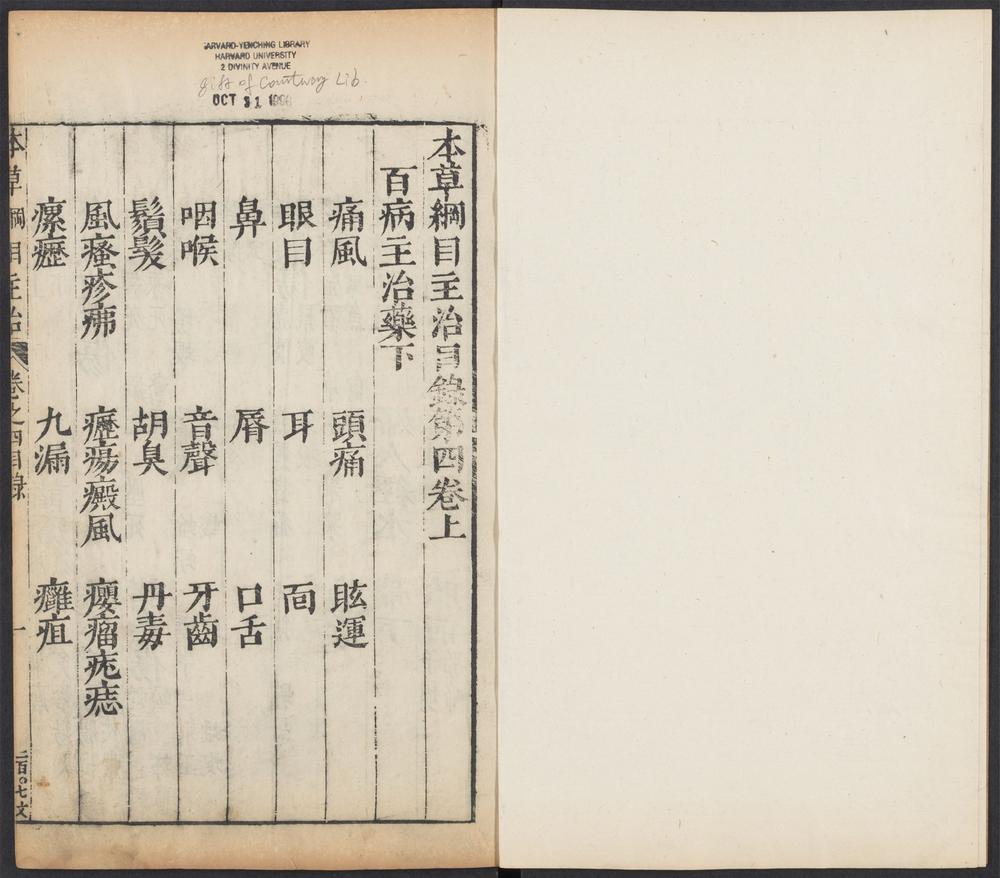 HARVARD-YENCHING LIBRARY
HARVARD UNIVERSITY
2 DIVINITY AVENUE
gift of Countway Lib.
OCT 31 1990
本草綱目主治目錄第四卷上
百病主治藥下
痛風 頭痛 眩運
眼目 耳 面
鼻 脣 口舌
咽喉 音聲 牙齒
鬚髮 胡臭 丹毒
風瘙疹疿 癧瘍癜風 癭瘤疣痣
瘰癧 九漏 癰疽
本草綱目主治 卷之四目錄 一 二百〇七文